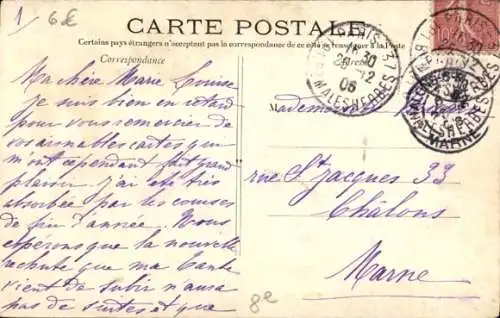 1 / 6€
CARTE POSTALE
Certains pays étrangers n'acceptent pas la correspondance de ce côté se renseigner à la Poste
Correspondance
Adresse
Ma chère Marie Louise
je suis bien en retard
pour vous remercier de
vos aimables cartes qui
m'ont cependant fait grand
plaisir j'ai été très
absorbée par les courses
de fin d'année. Nous
espérons que la nouvelle
rechute que ma tante
vient de subir n'aura
pas de suites et que
Mademoiselle
rue St Jacques 33
Châlons
Marne
8e
PARIS
30
12
06
MALESHERBES
PARIS
MARNE
10